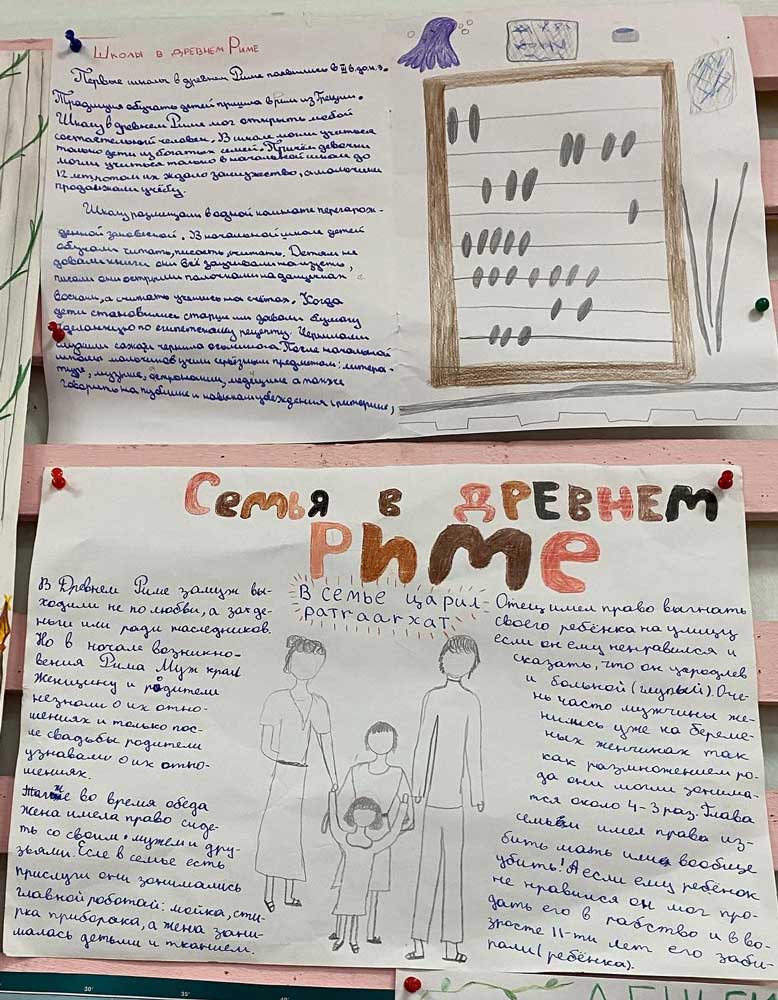 Школы в древнем Риме
Первые школы в древнем Риме появились в III в. до н.э.
Традиция обучать детей пришла в рим из Греции.
Школу в древнем Риме мог открыть любой
состоятельный человек. В школе могли учиться
только дети из богатых семей. Причём девочки
могли учиться только в начальной школе до
12 лет, потом их ждало замужество, а мальчики
продолжали учёбу.
Школу размещали в одной комнате перегорож-
денной занавеской. В начальной школе детей
обучали читать, писать, считать. Детям не
давали книги они всё заучивали наизусть,
писали они острыми палочками на дощечках с
воском, а считать учились на счётах. Когда
дети становились старше им давали бумагу
сделанную по египетскому рецепту. Чернилами
служили сажа и чернила осьминога. После начальной
школы мальчиков учили серьёзным предметам: литера-
туре, музыке, астрономии, медицине а также
говорить на публике и навыкам убеждения (риторике)
Семья в древнем
Риме
В семье царил
patraархат.
В Древнем Риме замуж вы-
ходили не по любви, а за де-
ньги или ради наследников.
Но в начале возникно-
вения Рима Муж крал
Женщину и родители
незнали о их отно-
шениях и только пос-
ле свадьбы родители
узнавали о их отно-
шениях.
Также во время обеда
жена имела право сиде-
ть со своим мужем и дру-
зьями. Если в семье есть
прислуги они занимались
главной работой: мойка, сти-
рка приборка, а жена зани-
малась детьми и тканием.
Отец имел право выгнать
своего ребёнка на улицу
если он ему ненравился и
сказать, что он уродлев
и больной (глупый). Оче-
нь часто мужчины же-
нились уже на береме-
ных женчинах так
как размножением ро-
да они могли занима-
тся около 4-3 раз. Глава
семьи имел права из-
бить мать или вообще
убить! А если ему ребёнок
не нравился он мог про-
дать его в рабство и в во-
зросте 11-ти лет его заби-
рали (ребёнка).
30°
35°